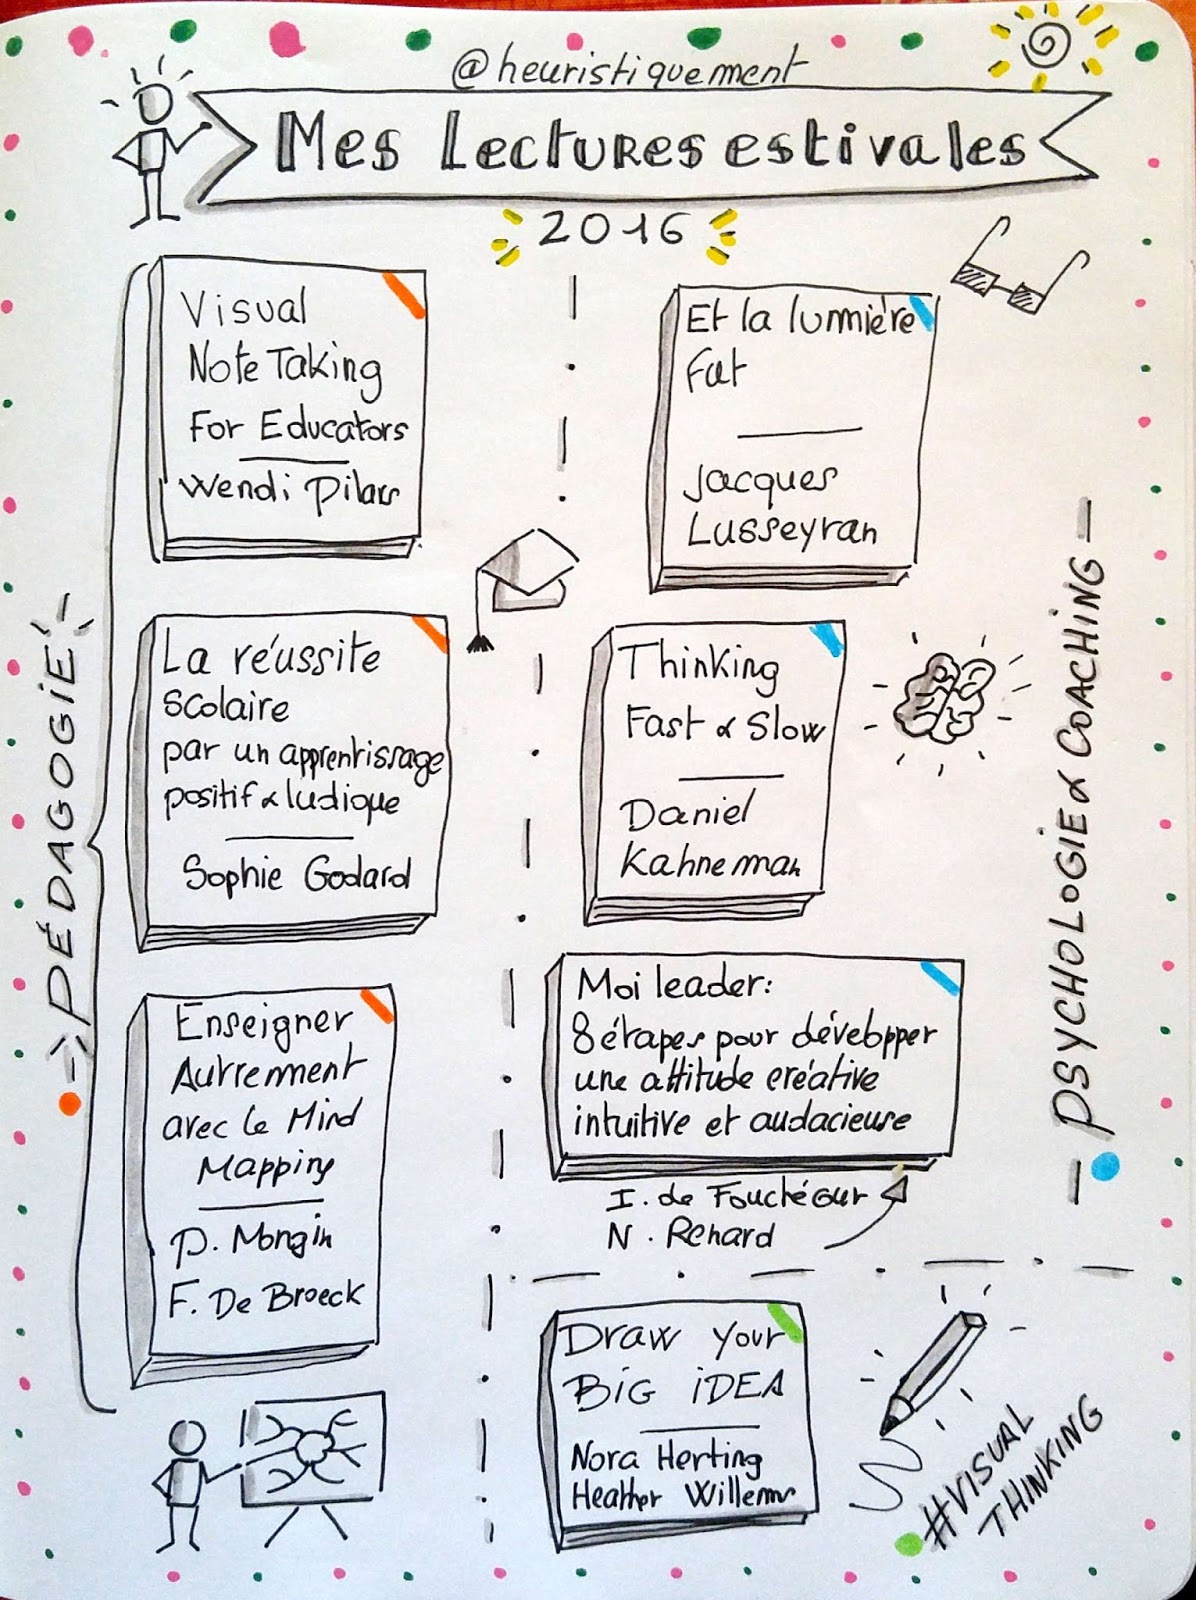 @heuristiquement
Mes Lectures estivales
2016
PÉDAGOGIE
Visual
Note Taking
For Educators
Wendi Pilars
La réussite
scolaire
par un apprentissage
positif & ludique
Sophie Godard
Enseigner
Autrement
avec le Mind
Mapping
P. Mongin
F. De Broeck
PSYCHOLOGIE & COACHING
Et la lumière
fut
Jacques
Lusseyran
Thinking
Fast & Slow
Daniel
Kahneman
Moi leader:
8 étapes pour développer
une attitude créative
intuitive et audacieuse
I. de Fouchécour
N. Renard
Draw your
BiG iDEA
Nora Herting
Heather Willems
#VISUAL
THINKING